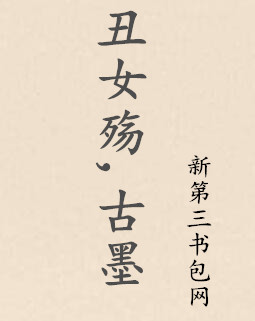 丑女殇,古墨
新第三书包网